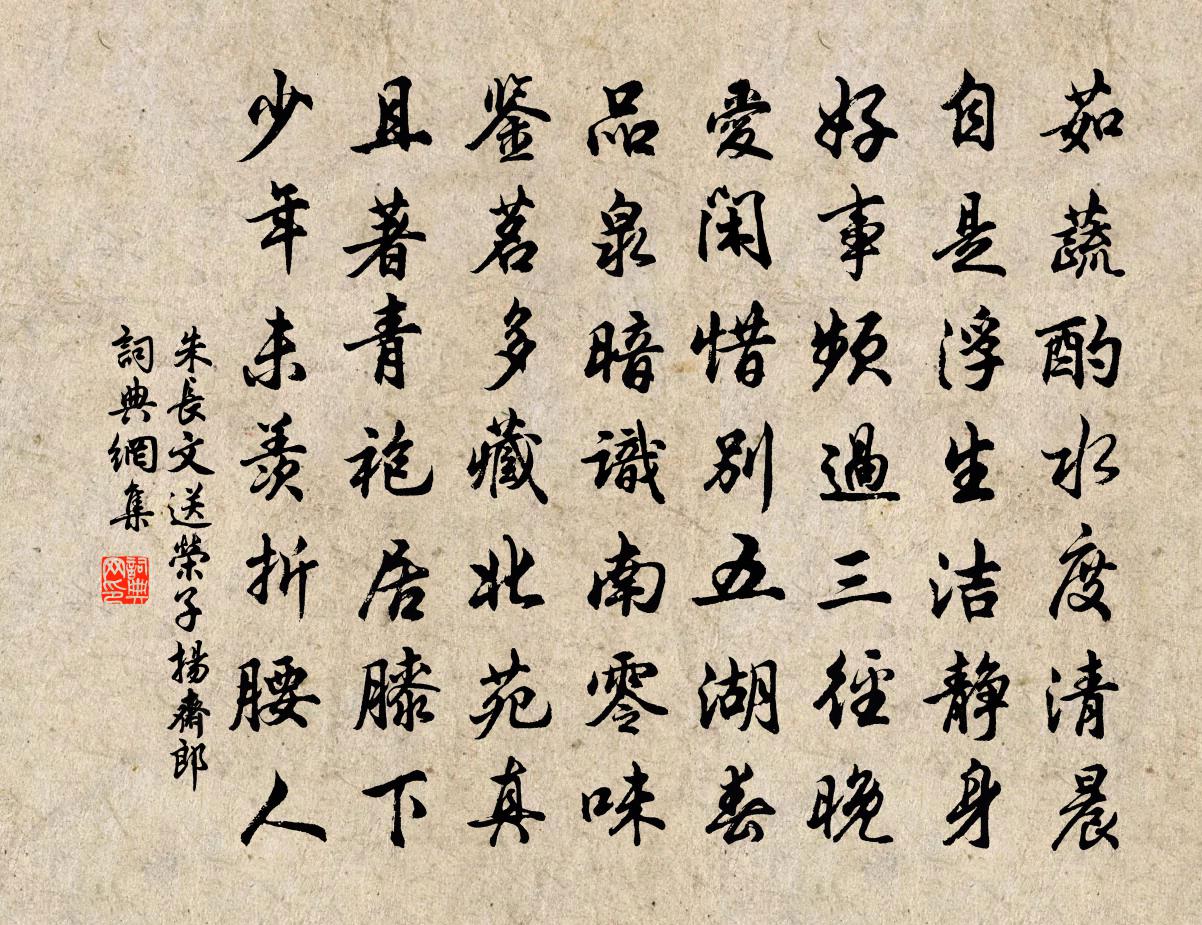 茹蔬酌水度清晨
自是浮生洁静身
好事频過三径晚
愛闲惜别五湖春
品泉暗識南零味
鉴茗多藏北苑真
且著青袍居膝下
少年未羡折腰人
朱長文送榮子揚齋郎
詞典網集
詞典网印